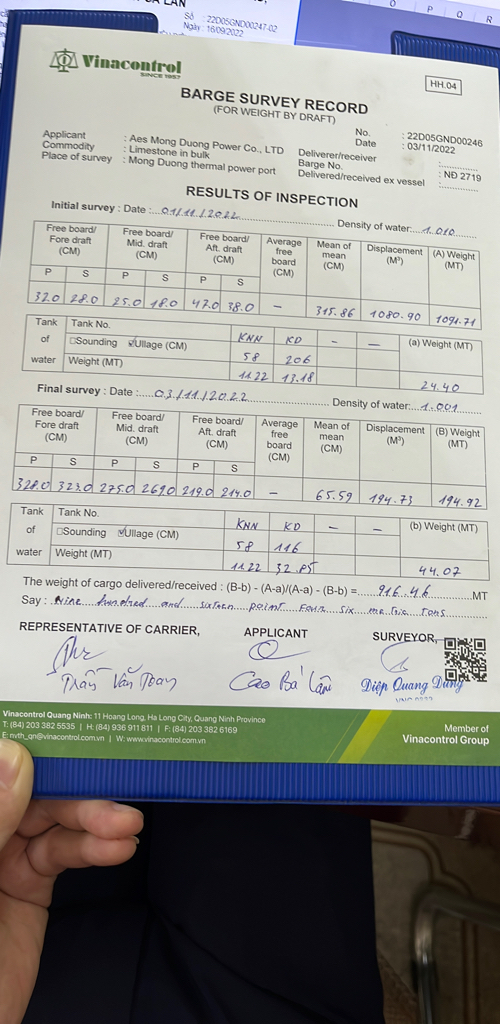 Số : 22D05GND00247-02
Ngày : 16/09/2022
O P Q R
Vinacontrol
SINCE 1957
HH.04
BARGE SURVEY RECORD
(FOR WEIGHT BY DRAFT)
No. : 22D05GND00246
Date : 03/11/2022
Applicant : Aes Mong Duong Power Co., LTD
Deliverer/receiver :
Commodity : Limestone in bulk
Barge No. : NĐ 2719
Place of survey : Mong Duong thermal power port
Delivered/received ex vessel :
RESULTS OF INSPECTION
Initial survey : Date : 01/11/2022 Density of water: 1.010
Free board/ Fore draft (CM) Free board/ Mid. draft (CM) Free board/ Aft. draft (CM) Average free board (CM) Mean of mean (CM) Displacement (M³) (A) Weight (MT)
P S P S P S
32.0 28.0 25.0 18.0 47.0 38.0 - 315.86 1080.90 1091.71
Tank of water Tank No. KNN KD - - (a) Weight (MT)
□Sounding ☑Ullage (CM) 58 206
Weight (MT) 11.22 13.18 24.40
Final survey : Date : 03/11/2022 Density of water: 1.001
Free board/ Fore draft (CM) Free board/ Mid. draft (CM) Free board/ Aft. draft (CM) Average free board (CM) Mean of mean (CM) Displacement (M³) (B) Weight (MT)
P S P S P S
328.0 323.0 275.0 269.0 219.0 214.0 - 65.59 194.73 194.92
Tank of water Tank No. KNN KD - - (b) Weight (MT)
□Sounding ☑Ullage (CM) 58 116
Weight (MT) 11.22 32.85 44.07
The weight of cargo delivered/received : (B-b) - (A-a)/(A-a) - (B-b) = 916.46 MT
Say : Nine hundred and sixteen point four six metric tons
REPRESENTATIVE OF CARRIER, APPLICANT SURVEYOR,
Trần Văn Toan Cao Bá Lân Diệp Quang Dũng
Vinacontrol Quang Ninh: 11 Hoang Long, Ha Long City, Quang Ninh Province
T: (84) 203 382 5535 | H: (84) 936 911 811 | F: (84) 203 382 6169
E: nvth_qn@vinacontrol.com.vn | W: www.vinacontrol.com.vn
Member of
Vinacontrol Group